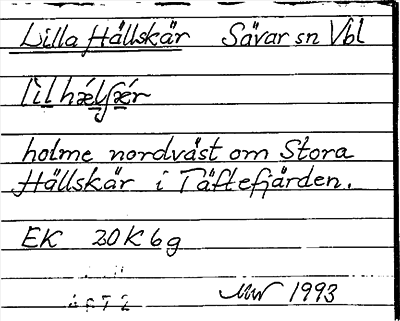 Lilla Hällskär Sävar sn Vbl
holme nordväst om Stora
Hällskär i Täftefjärden.
EK 20K6g
MW 1993